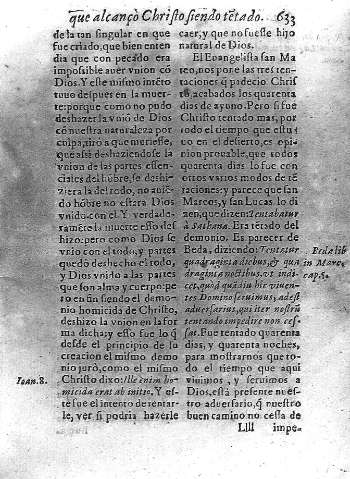 que alcançò Christo siendo tẽtado. 633
de la tan singular en que
fue criado, que bien enten
dia que con pecado era
impossible auer vnion cõ
Dios. Y esse mismo intẽto
tuuo despues en la muer-
te: porque como no pudo
deshazer la vniõ de Dios
cõ nuestra naturaleza por
culpa, tirò a que muriesse,
que assi deshaziendose la
vnion de las partes essen-
ciales del hõbre, se deshi-
ziera la del todo, no auiẽ-
do hõbre no estara Dios
vnido con el. Y verdade-
ramẽte la muerte esso des
hizo: pero como Dios se
vnio con el todo, y partes
quedò deshecho el todo,
y Dios vnido a las partes
que son alma y cuerpo: pe
ro en fin siendo el demo-
nio homicida de Christo,
deshizo la vnion en la for
ma dicha: y esso fue lo q̃
desde el principio de su
creacion el mismo demo
nio jurò, como el mismo
Christo dixo: Ille enim ho-
micida erat ab initio. Y es-
te fue el intento de tentar-
le, ver si podria hazerle
Ioan. 8.
caer, y que no fuesse hijo
natural de Dios.
El Euangelista san Ma-
teo, nos pone las tres ten-
taciones q̃ padecio Chris
to, acabados los quarenta
dias de ayuno. Pero si fue
Christo tentado mas, por
todo el tiempo que estu
uo en el desierto, es opi-
nion prouable, que todos
quarenta dias lo fue con
otros varios modos de tẽ
taciones: y parece que san
Marcos, y san Lucas, lo di
zen, que dizen: Tentabatur
à Sathana. Era tẽtado del
demonio. Es parecer de
Beda, diziendo: Tentatur
quadraginta diebus, & qua
draginta noctibus, vt indi-
cet, quod quãdiu hic viuen-
tes Domino seruimus, adest
aduersarius, qui iter nostrũ
tentando impedire non ces-
sat. Fue tentado quarenta
dias, y quarenta noches,
para mostrarnos que to-
do el tiempo que aqui
viuimos, y seruimos a
Dios, està presente nues-
tro aduersario, q̃ nuestro
buen camino no cessa de
Beda lib
in Marc.
cap. 5.
Llll impe-